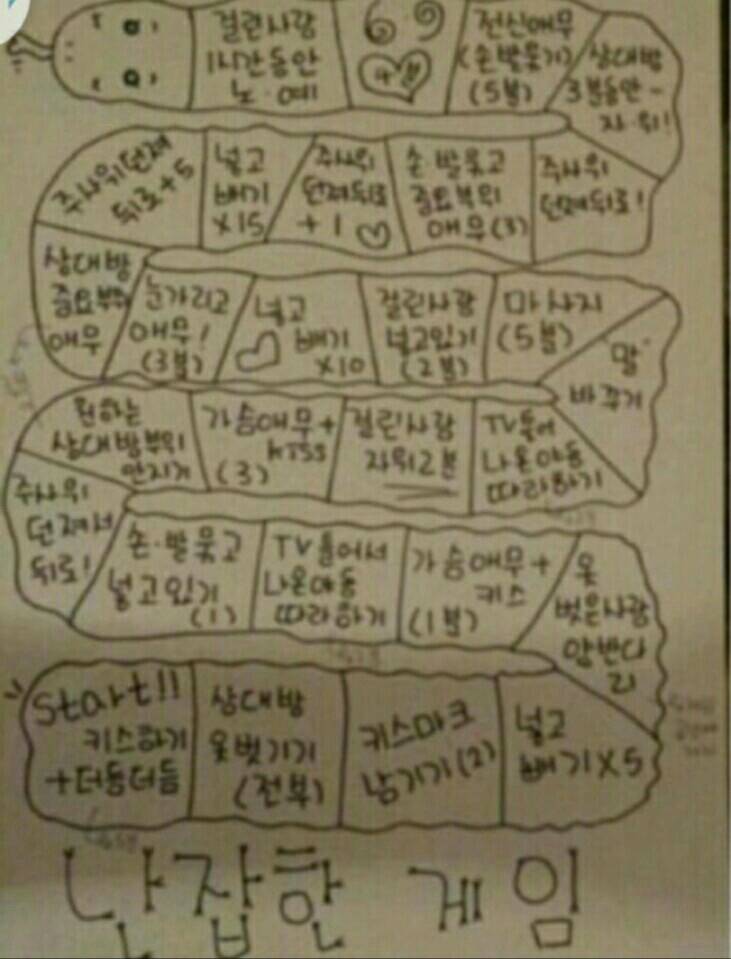 start!!
키스하기
+더듬더듬
상대방
옷벗기기
(전부)
키스마크
남기기(2)
넣고
빼기X5
옷
벗은사람
양반다
리
가슴애무+
키스
(1분)
TV틀어서
나온야동
따라하기
손·발묶고
넣고있기
(1)
주사위
던져서
뒤로!
원하는
상대방부위
만지기
가슴애무+
KISS
(3)
걸린사람
자위2분
TV틀어
나온야동
따라하기
"말"
바꾸기
마사지
(5분)
걸린사람
넣고있기
(2분)
넣고
빼기
X10
눈가리고
애무!
(3분)
상대방
중요부위
애무
주사위던져
뒤로+5
넣고
빼기
X15
주사위
던져뒤로
+1
손·발묶고
중요부위
애무(3)
주사위
던져뒤로!
상대방
3분동안-
자·위!
전신애무
(손발묶기)
(5분)
6·9
걸린사람
1시간동안
노·예
난잡한 게임